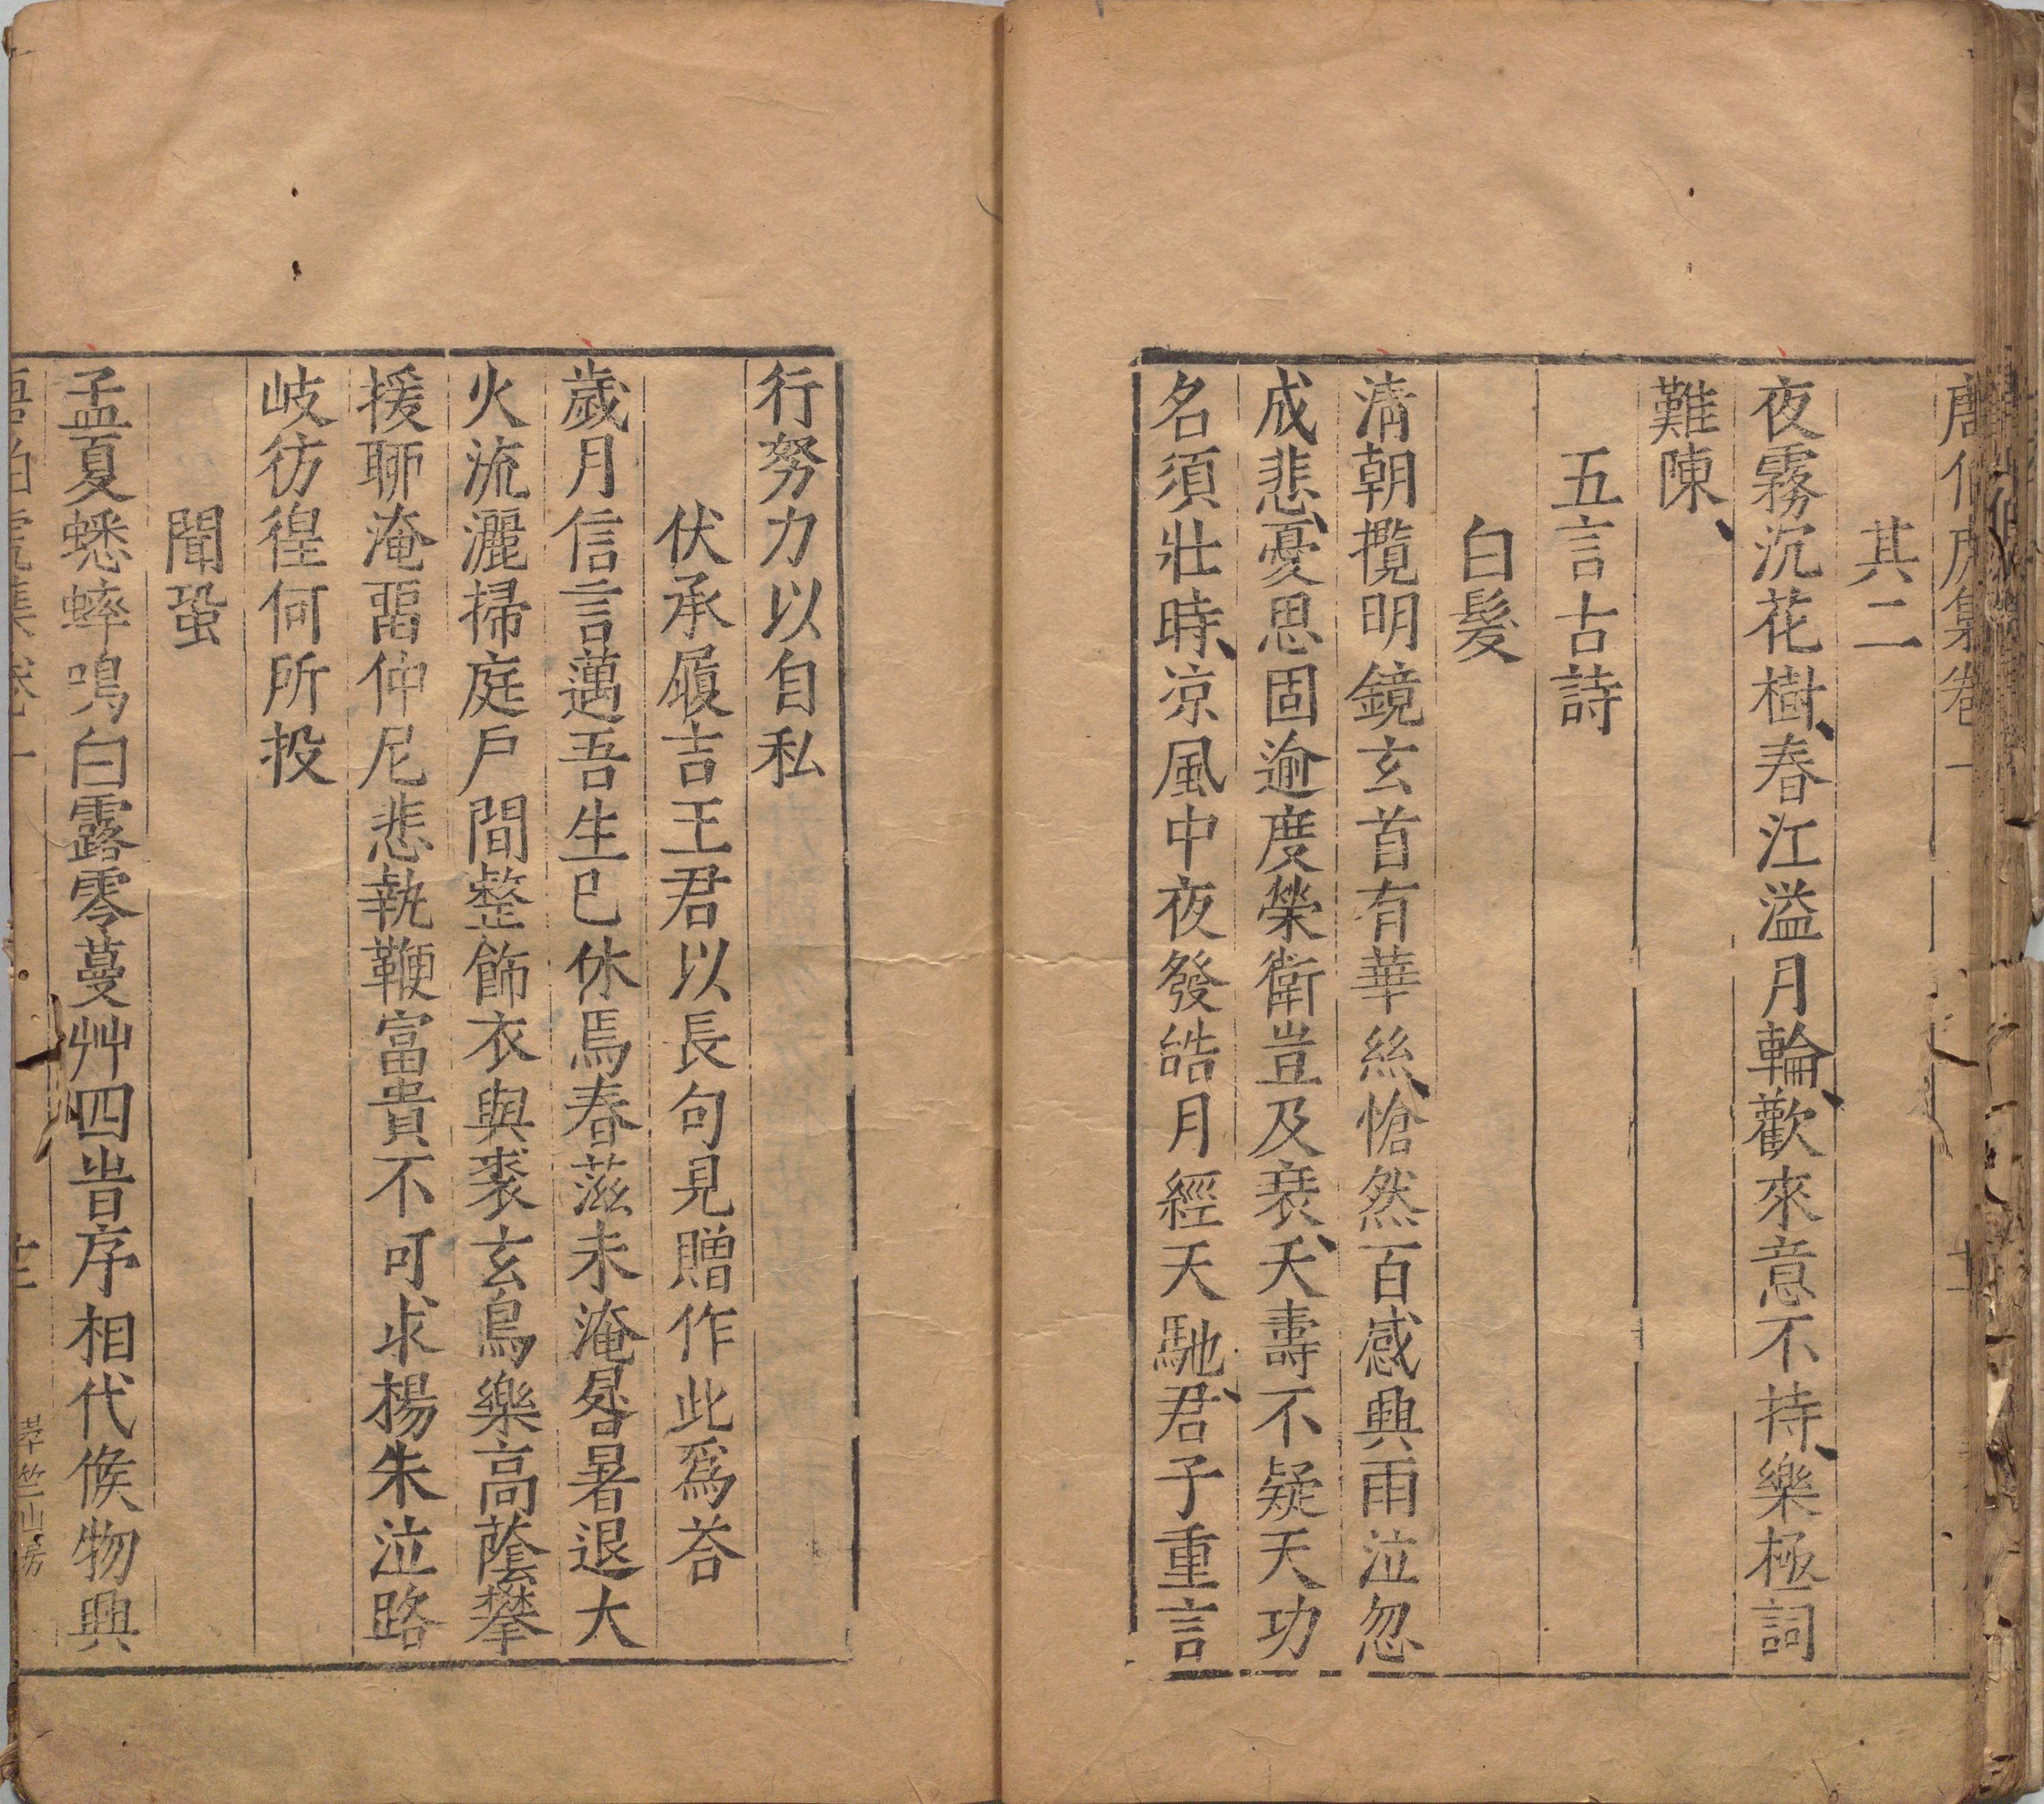 唐伯虎集卷一
其二
夜霧沉花樹春江溢月輪歡來意不持樂極詞
難陳
五言古詩
白髮
清朝攬明鏡玄首有華絲愴然百感興雨泣忽
成悲憂思固逾度榮衛豈及衰夭壽不疑天功
名須壯時凉風中夜發皓月經天馳君子重言
行努力以自私
伏承履吉王君以長句見贈作此爲荅
歲月信言邁吾生已休焉春滋未淹晷暑退大
火流灑掃庭戸間整飾衣與裘玄鳥樂高蔭攀
援聊淹畱仲尼悲執鞭富貴不可求楊朱泣路
岐彷徨何所投
聞蛩
孟夏蟋蟀鳴白露零蔓艸四旹序相代候物興
唐伯虎集卷一